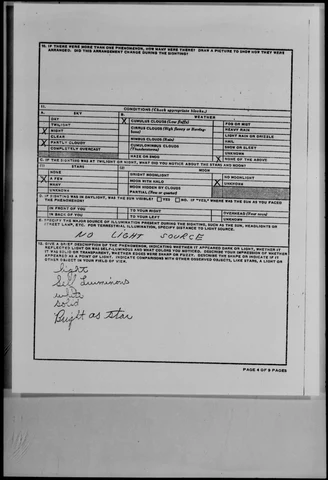 10. IF THERE WERE MORE THAN ONE PHENOMENON, HOW MANY WERE THERE? DRAW A PICTURE TO SHOW HOW THEY WERE
ARRANGED. DID THIS ARRANGEMENT CHANGE DURING THE SIGHTING?
11. CONDITIONS (Check appropriate blocks.)
A. SKY
B. WEATHER
DAY
CUMULUS CLOUDS (Low fluffy)
FOG OR MIST
TWILIGHT
CIRRUS CLOUDS (High fleecy or Herring-bone)
HEAVY RAIN
X NIGHT
LIGHT RAIN OR DRIZZLE
CLEAR
NIMBUS CLOUDS (Rain)
HAIL
X PARTLY CLOUDY
CUMULONIMBUS CLOUDS
(Thunderstorms)
SNOW OR SLEET
COMPLETELY OVERCAST
UNKNOWN
HAZE OR SMOG
X NONE OF THE ABOVE
C. IF THE SIGHTING WAS AT TWILIGHT OR NIGHT, WHAT DID YOU NOTICE ABOUT THE STARS AND MOON?
(1) STARS
(2) MOON
NONE
BRIGHT MOONLIGHT
NO MOONLIGHT
X A FEW
MOON WITH HALO
X UNKNOWN
MANY
MOON HIDDEN BY CLOUDS
UNKNOWN
PARTIAL (New or quarter)
D. IF SIGHTING WAS IN DAYLIGHT, WAS THE SUN VISIBLE? YES NO IF "YES," WHERE WAS THE SUN AS YOU FACED
THE PHENOMENON?
IN FRONT OF YOU
TO YOUR RIGHT
OVERHEAD (Near noon)
IN BACK OF YOU
TO YOUR LEFT
UNKNOWN
E. SPECIFY THE MAJOR SOURCE OF ILLUMINATION PRESENT DURING THE SIGHTING, SUCH AS THE SUN, HEADLIGHTS OR
STREET LAMP, ETC. FOR TERRESTRIAL ILLUMINATION, SPECIFY DISTANCE TO LIGHT SOURCE.
NO LIGHT SOURCE
12. GIVE A BRIEF DESCRIPTION OF THE PHENOMENON, INDICATING WHETHER IT APPEARED DARK OR LIGHT, WHETHER IT
REFLECTED LIGHT OR WAS SELF-LUMINOUS AND WHAT COLORS YOU NOTICED. DESCRIBE YOUR IMPRESSION OF WHETHER
IT WAS SOLID OR TRANSPARENT, WHETHER EDGES WERE SHARP OR FUZZY. DESCRIBE THE SHAPE OR INDICATE IF IT
APPEARED AS A POINT OF LIGHT. INDICATE COMPARISONS WITH OTHER OBSERVED OBJECTS, LIKE STARS, A LIGHT OR
OTHER OBJECT IN YOUR FIELD OF VIEW.
light
Self Luminous
white
solid
Bright as star
PAGE 4 OF 9 PAGES